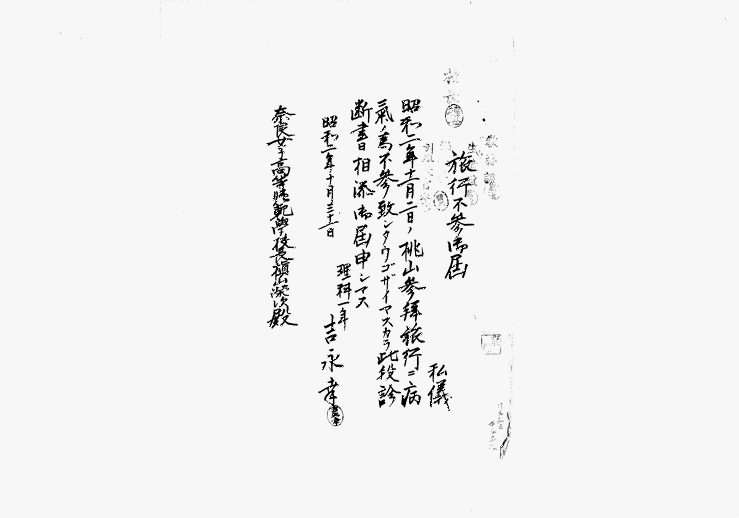 旅行不参御届
私儀
昭和二年十一月二日ノ桃山参拝旅行ニ病
氣ノ為不参致シタウゴザイマスカラ此段診
断書相添御届申シマス
昭和二年十月三十一日
理科一年
吉永幸
奈良女子高等師範學校長槇山榮次殿